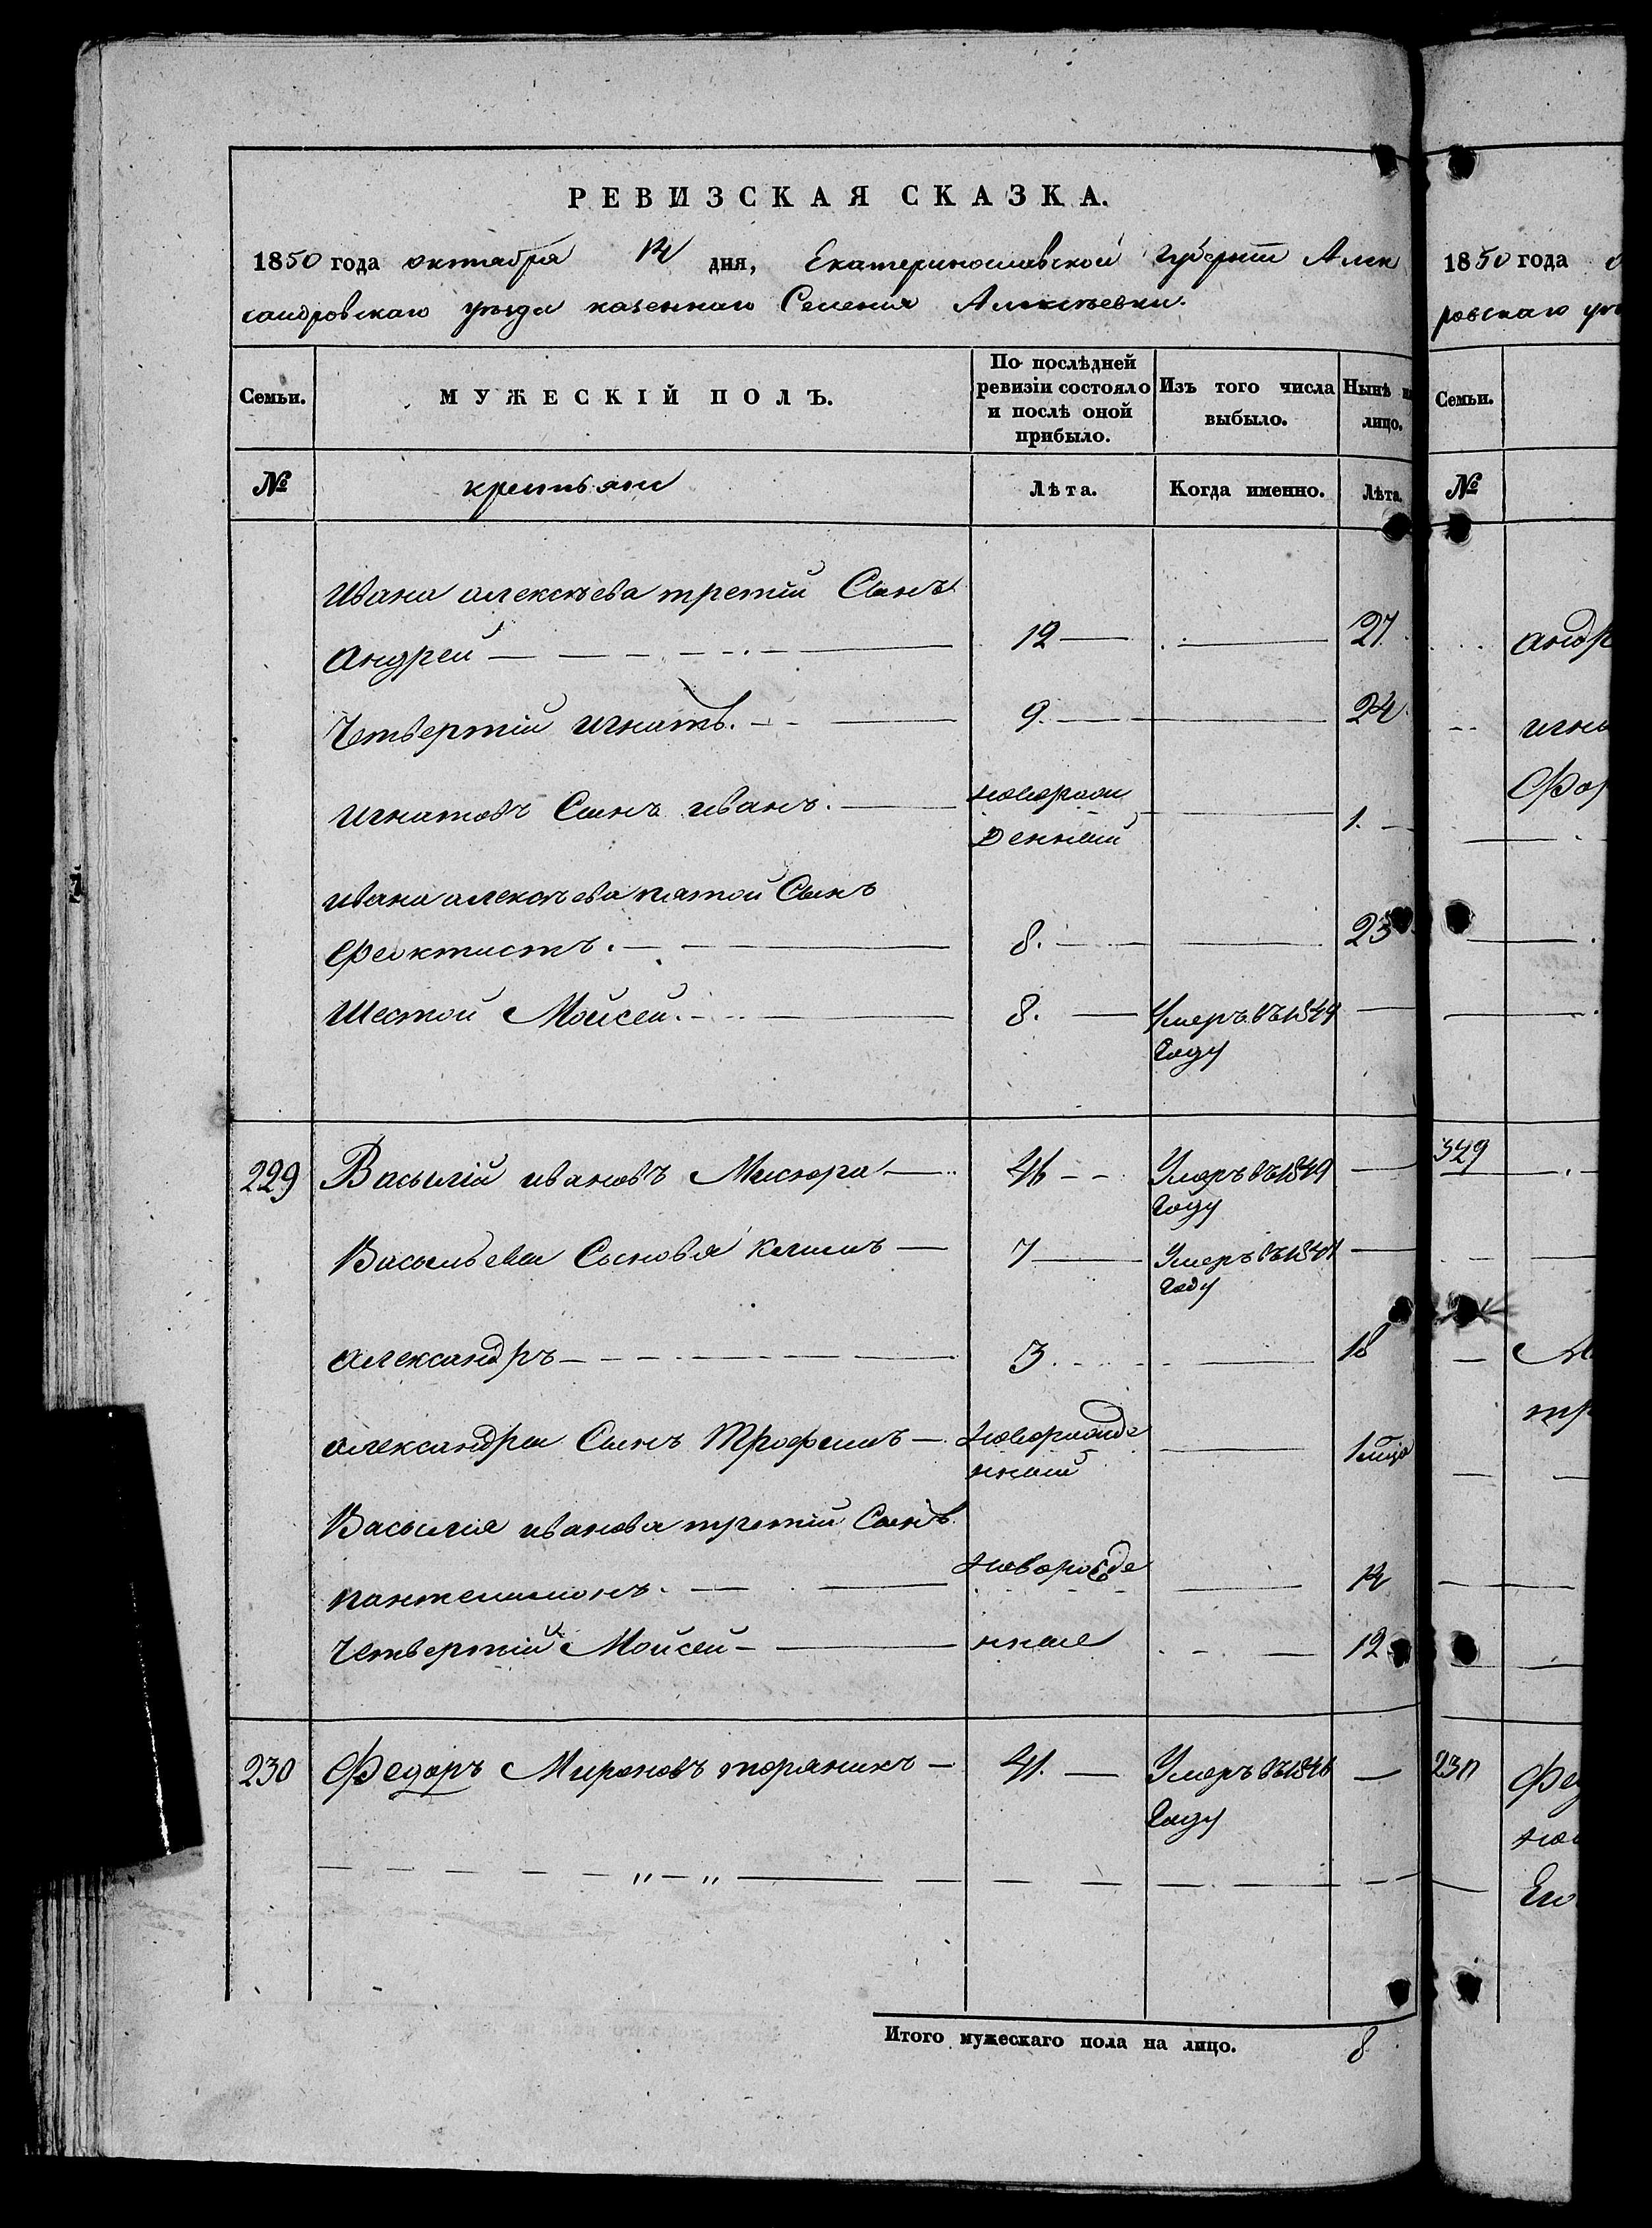 РЕВИЗСКАЯ СКАЗКА.
1850 года октября 14 дня, Екатеринославской губерніи Алек
сандровскаго уѣзда казеннаго Селенія Алексѣевки.
Семьи. МУЖЕСКІЙ ПОЛЪ. По послѣдней ревизіи состояло и послѣ оной прибыло. Изъ того числа выбыло. Нынѣ на лицо.
№ крестьяне Лѣта. Когда именно. Лѣта.
Ивана алексѣева третій Сынъ
андрей 12 27.
Четвертій игнатъ. 9. 24.
игнатовъ Сынъ иванъ. новорож
денный 1.
ивана алексѣева пятой Сынъ
феоктистъ. 8. 23
Шестой Мойсей. 8. Умеръ въ 1849
Году
229 Василій ивановъ Мисюра 46 Умеръ въ 1849
Году
Васильевы Сыновья Климъ 7 Умеръ въ
Году
александръ 3. 18
александра Сынъ Трофимъ новорожде
нный 1 мѣся
Василія иванова третій Сынъ
пантелимонъ. новорожде 14
Четвертій Мойсей нные 12
230 Федоръ Мироновъ торяникъ 41. Умеръ въ 1846
Году
" — "
Итого мужескаго пола на лицо. 8
1850 года
ровскаго
Семьи.
№
андр
игна
349
230